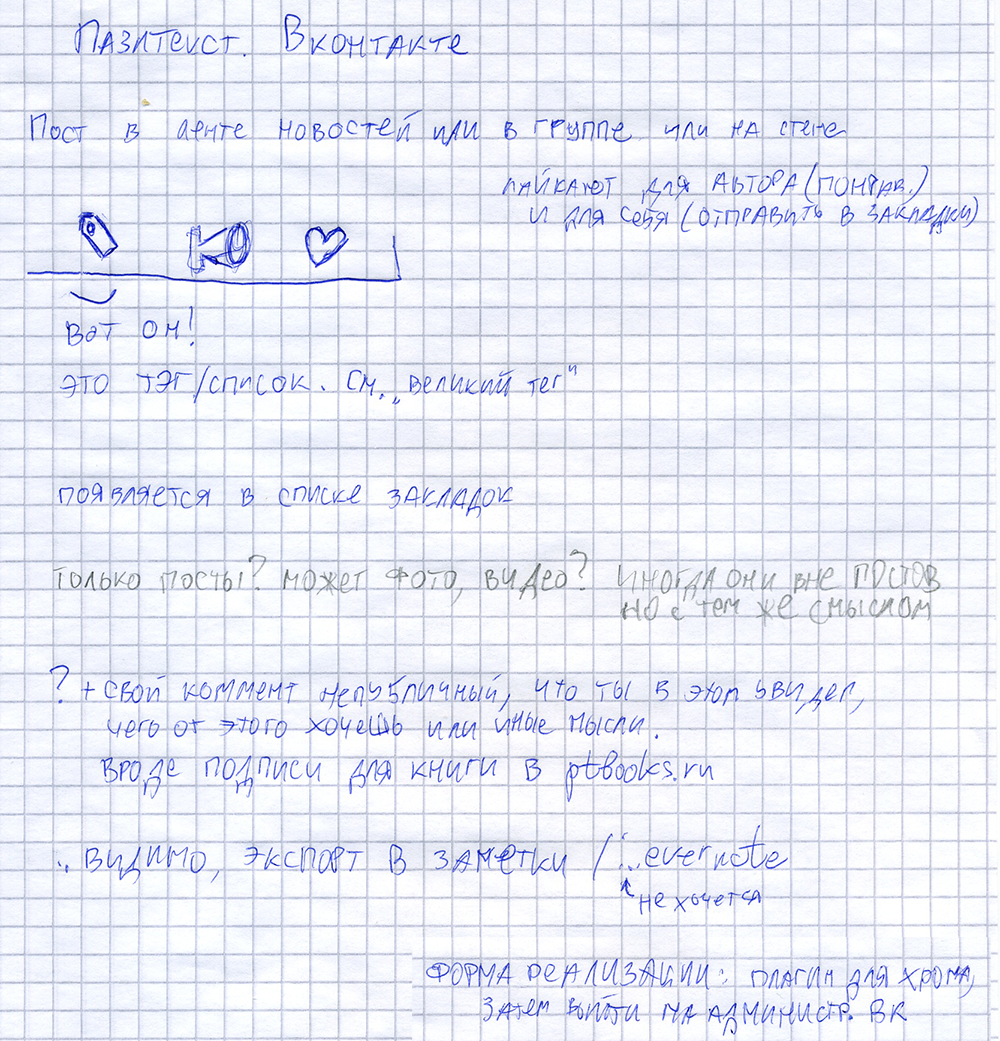 Пазлтекст. Вконтакте
Пост в ленте новостей или в группе или на стене
лайкают для автора (понрав.)
и для себя (отправить в закладки)
Вот он!
это тэг/список. см. „великий тег"
появляется в списке закладок
только посты? может фото, видео? иногда они вне постов
но с тем же смыслом
? + свой коммент непубличный, что ты в этом увидел,
чего от этого хочешь или иные мысли.
вроде подписи для книги в ptbooks.ru
.. видимо, экспорт в заметки / :..evernote
не хочется
форма реализации: плагин для хрома,
затем выйти на администр. ВК